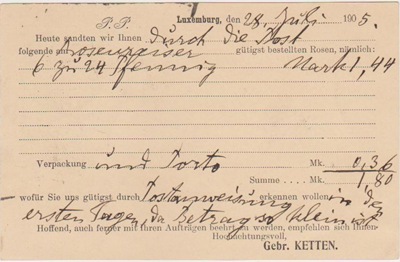 P. P.
Luxemburg, den 28. Juli 1905.
Heute sandten wir Ihnen durch die Post
folgende auf gütigst bestellten Rosen, nämlich:
6 zu 24 Pfennig Mark 1,44
Verpackung und Porto Mk. 0,36
Summe . . . Mk. 1,80
wofür Sie uns gütigst durch Postanweisung erkennen wollen in den
ersten Tagen, da Betrag so klein ist
Hoffend, auch ferner mit Ihren Aufträgen beehrt zu werden, empfehlen sich Ihnen
Hochachtungsvoll,
Gebr. KETTEN.